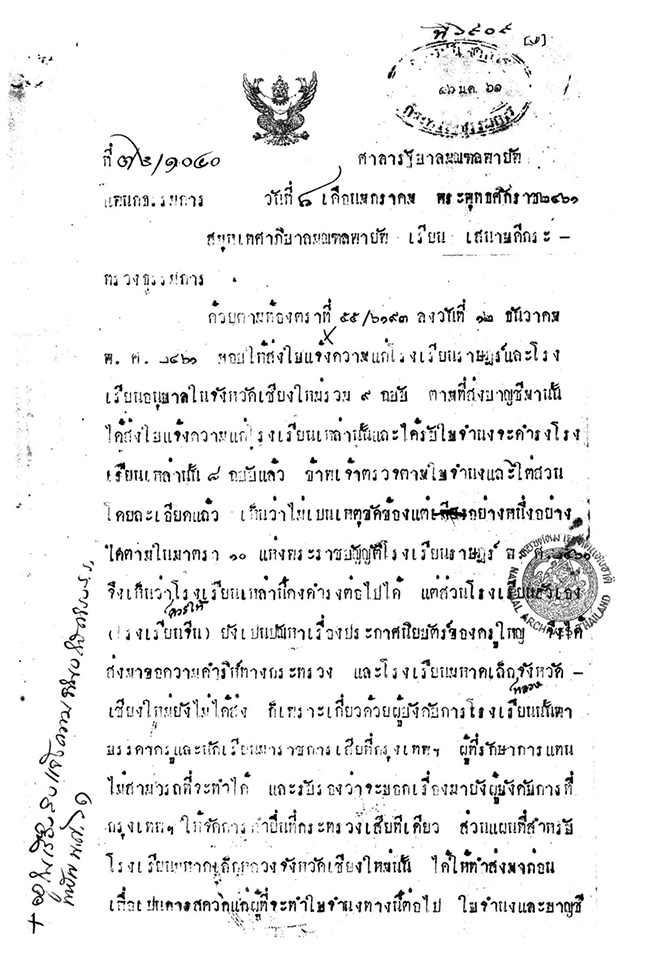 ที่ ๖๙๐๙
[๒]
๑๖ ม.ค. ๖๑
กระทรวงธรรมการ
ที่ ๗๕/๑๐๔๐ ศาลารัฐบาลมณฑลพายัพ
แพนกธรรมการ วันที่ ๘ เดือนมกราคม พระพุทธศักราช ๒๔๖๑
สมุหเทศาภิบาลมณฑลพายัพ เรียน เสนาบดีกระ-
ทรวงธรรมการ
ด้วยตามท้องตราที่ ๕๕/๖๑๙๓ ลงวันที่ ๑๒ ธันวาคม
พ.ศ. ๒๔๖๑ มอบให้ส่งใบแจ้งความแก่โรงเรียนราษฎร์และโรง
เรียนอนุบาลในจังหวัดเชียงใหม่รวม ๙ ฉบับ ตามที่ส่งบาญชีมานั้น
ได้ส่งใบแจ้งความแก่โรงเรียนเหล่านั้นและได้รับใบจำนงจะดำรงโรง
เรียนเหล่านั้น ๘ ฉบับแล้ว ข้าพเจ้าตรวจตามใบจำนงและไต่สวน
โดยละเอียดแล้ว เห็นว่าไม่เปนเหตุขัดข้องแต่อย่างหนึ่งอย่าง
ใดตามในมาตรา ๑๐ แห่งพระราชบัญญัติโรงเรียนราษฎร์ พ.ศ. ๒๔๖๐
จึงเห็นว่าโรงเรียนเหล่านี้คงดำรงต่อไปได้ แต่ส่วนโรงเรียนฮัวเอง
ควรให้
(โรงเรียนจีน) ยังเปนปัญหาเรื่องประกาศนิยบัตร์ของครูใหญ่ จึงได้
ส่งมาขอความดำริห์ทางกระทรวง และโรงเรียนมหาดเล็กจังหวัด-
หลวง
เชียงใหม่ยังไม่ได้ส่ง ก็เพราะเกี่ยวด้วยผู้บังคับการโรงเรียนนั้นพา
บรรดาครูและนักเรียนมาราชการเสียที่กรุงเทพฯ ผู้ที่รักษาการแทน
ไม่สามารถที่จะทำได้ และรับรองว่าจะบอกเรื่องมายังผู้บังคับการที่
กรุงเทพฯ ให้จัดการทำยื่นที่กระทรวงเสียทีเดียว ส่วนแผนที่สำหรับ
โรงเรียนมหาดเล็กหลวงจังหวัดเชียงใหม่นั้น ได้ให้ทำส่งมาก่อน
เพื่อเปนการสดวกแก่ผู้ที่จะทำใบจำนงทางนี้ต่อไป ใบจำนงและบาญชี
NATIONAL ARCHIVES THAILAND